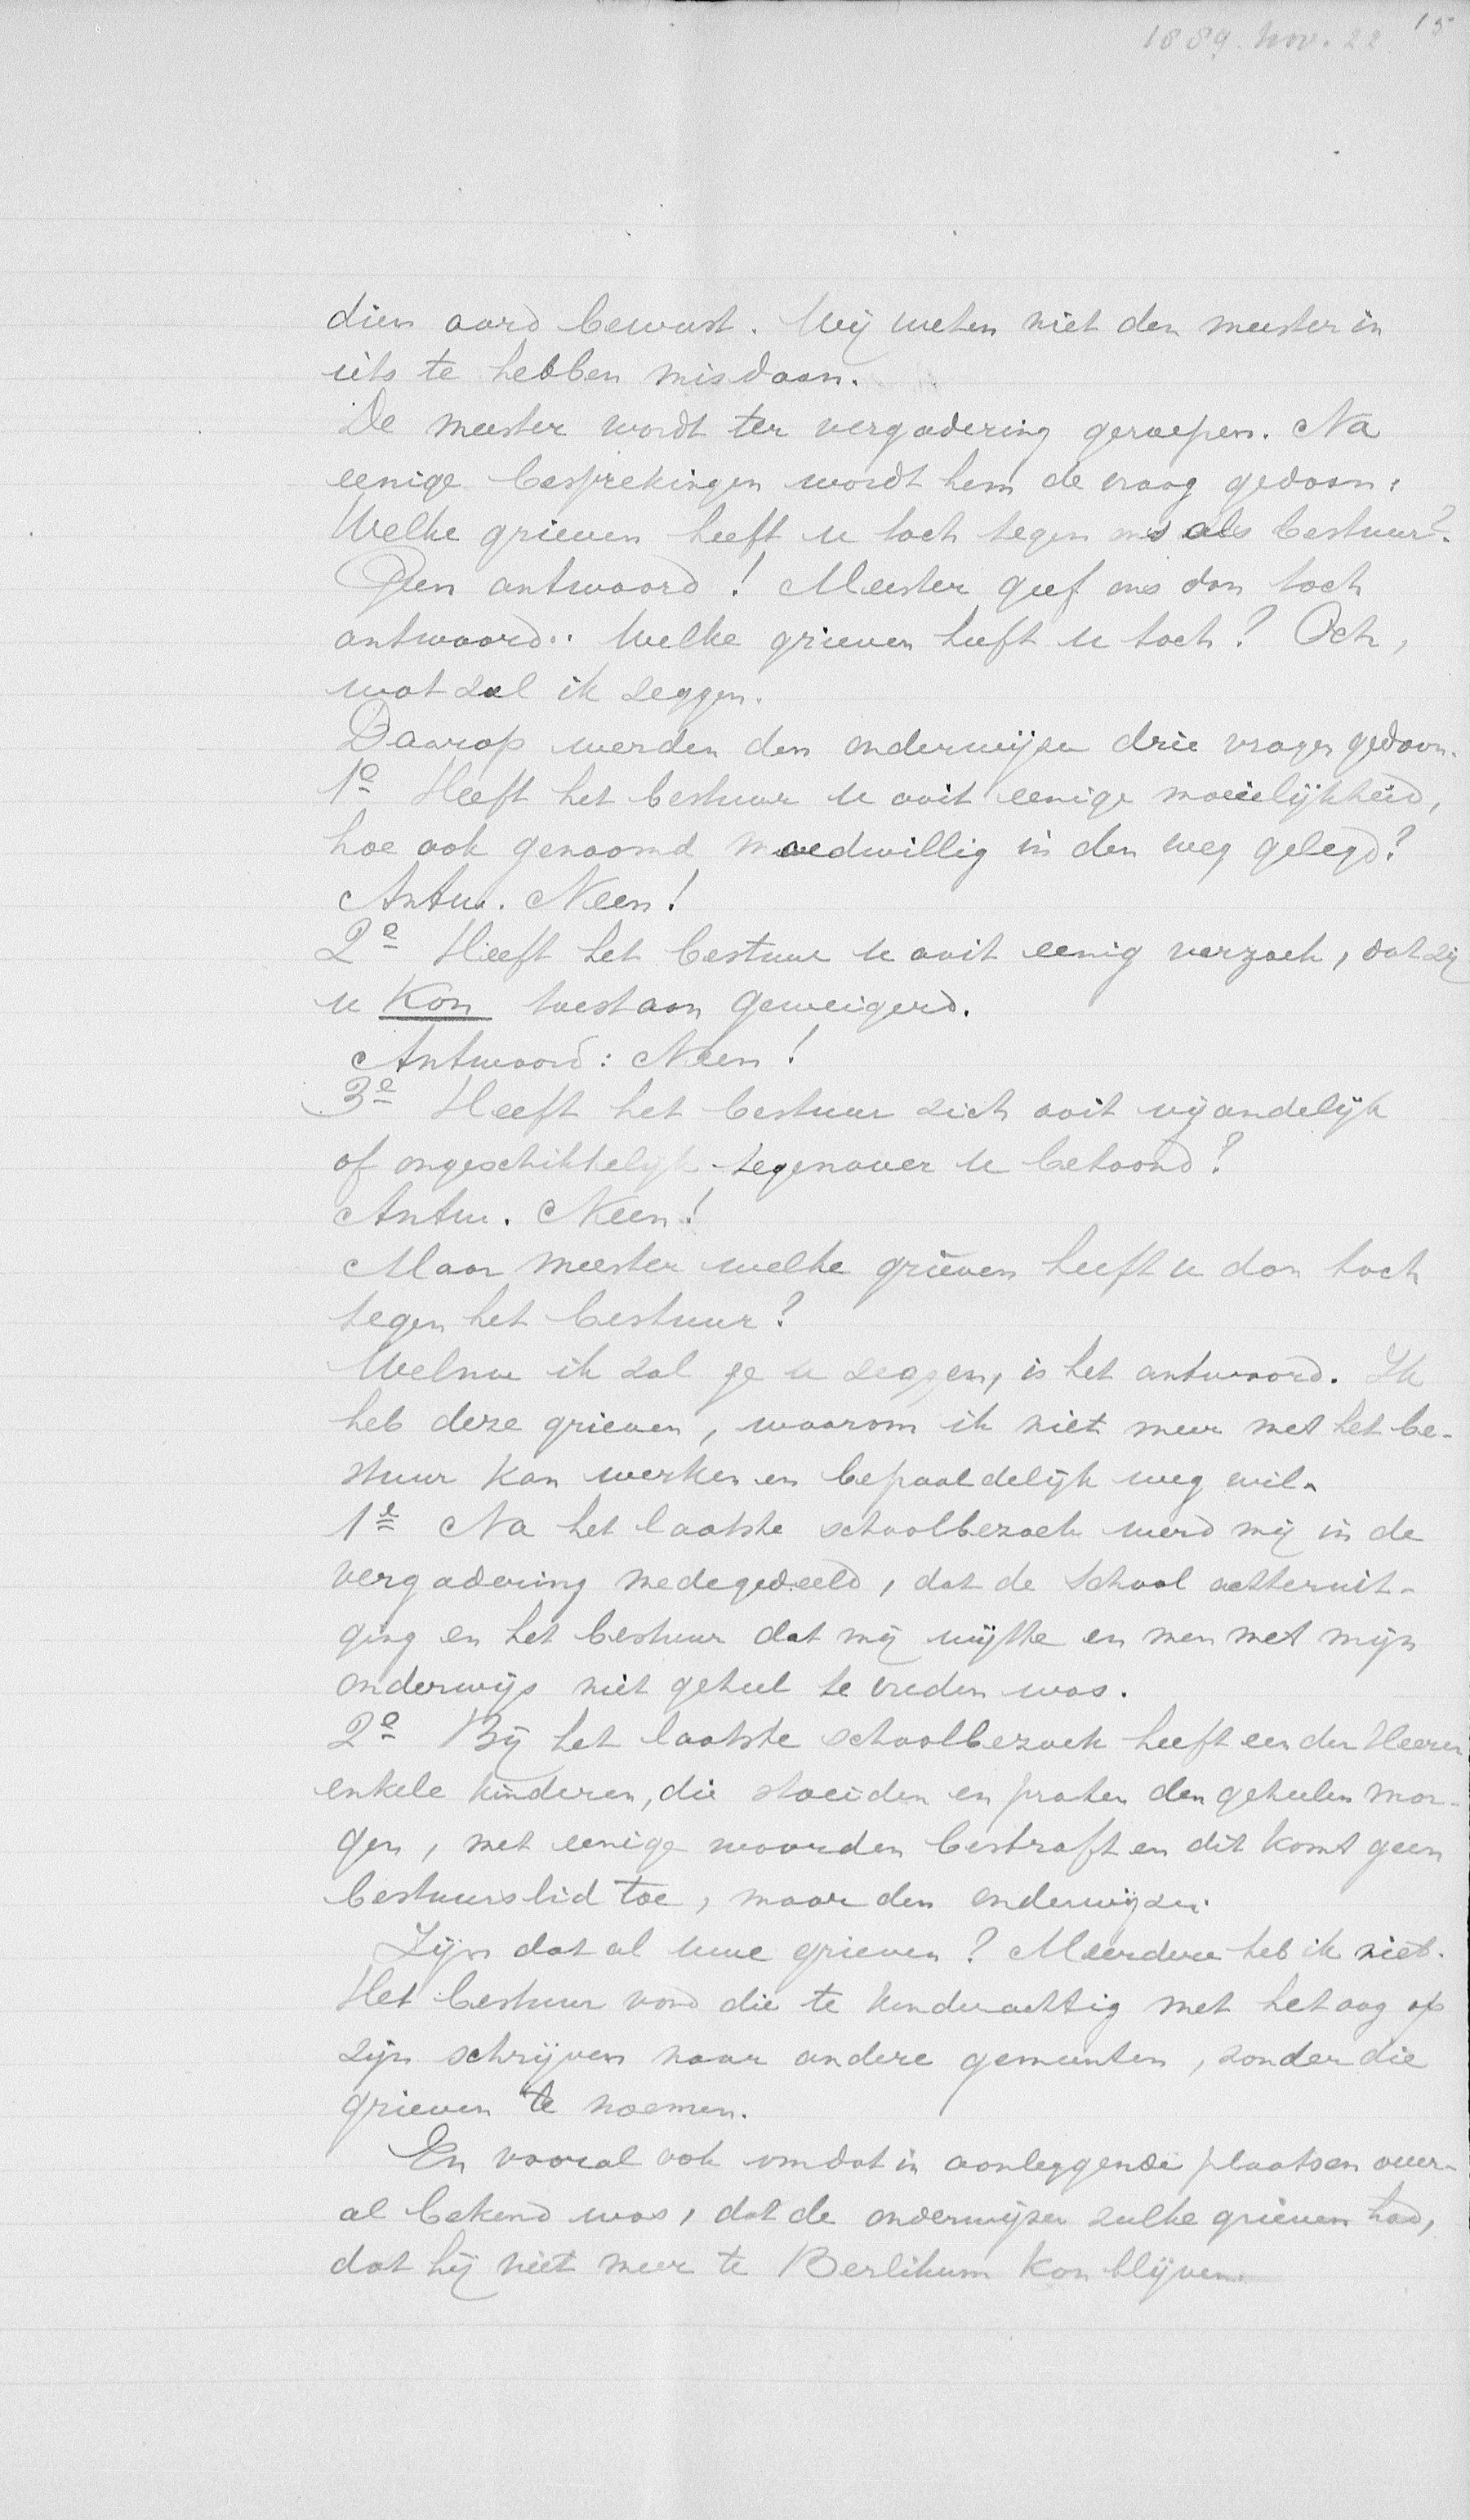 1889. Nov. 22. 15
dien aard bewust. Wij weten niet den meester in
iets te hebben misdaan.
De meester wordt ter vergadering geroepen. Na
eenige besprekingen wordt hem de vraag gedaan:
Welke grieven heeft u toch tegen ons als bestuur?
Geen antwoord! Meester geef ons dan toch
antwoord. Welke grieven heeft u toch? Och,
wat zal ik zeggen.
Daarop werden den onderwijzer drie vragen gedaan.
1e Heeft het bestuur u ooit eenige moeielijkheid,
hoe ook genaamd moedwillig in den weg gelegd?
Antw. Neen!
2e Heeft het bestuur u ooit eenig verzoek, dat zij
u kon toestaan geweigerd.
Antwoord: Neen!
3e Heeft het bestuur zich ooit vijandelijk
of ongeschikkelijk tegenover u betoond?
Antw. Neen!
Maar meester welke grieven heeft u dan toch
tegen het bestuur?
Welnu ik zal ze u zeggen, is het antwoord. Ik
heb deze grieven, waarom ik niet meer met het be-
stuur kan werken en bepaaldelijk weg wil.
1e Na het laatste schoolbezoek werd mij in de
vergadering medegedeeld, dat de school achteruit-
ging en het bestuur dat mij wijtte en men met mijn
onderwijs niet geheel te vreden was.
2e Bij het laatste schoolbezoek heeft een der Heeren
enkele kinderen, die stoeiden en praten den geheelen mor-
gen, met eenige woorden bestraft en dit komt geen
bestuurslid toe, maar den onderwijzer.
Zijn dat al uwe grieven? Meerdere heb ik niet.
Het bestuur vond die te kinderachtig met het oog op
zijn schrijven naar andere gemeenten, zonder die
grieven te noemen.
En vooral ook omdat in aanleggende plaatsen over-
al bekend was, dat de onderwijzer zulke grieven had,
dat hij niet meer te Berlikum kon blijven.